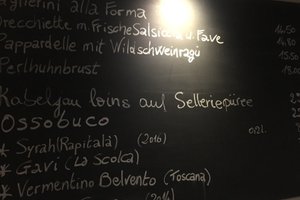 Taglierini alla Forma
Orecchiette m. Frische Salsiccia u. Fave 14.50
Pappardelle mit Wildschweinragù
Perlhuhnbrust
Kabeljau loins auf Selleriepüree
Ossobuco
* Syrah (Rapitalà) (2016) 0,2l.
* Gavi (La Scolca)
* Vermentino Belvento (Toscana)
(2016)